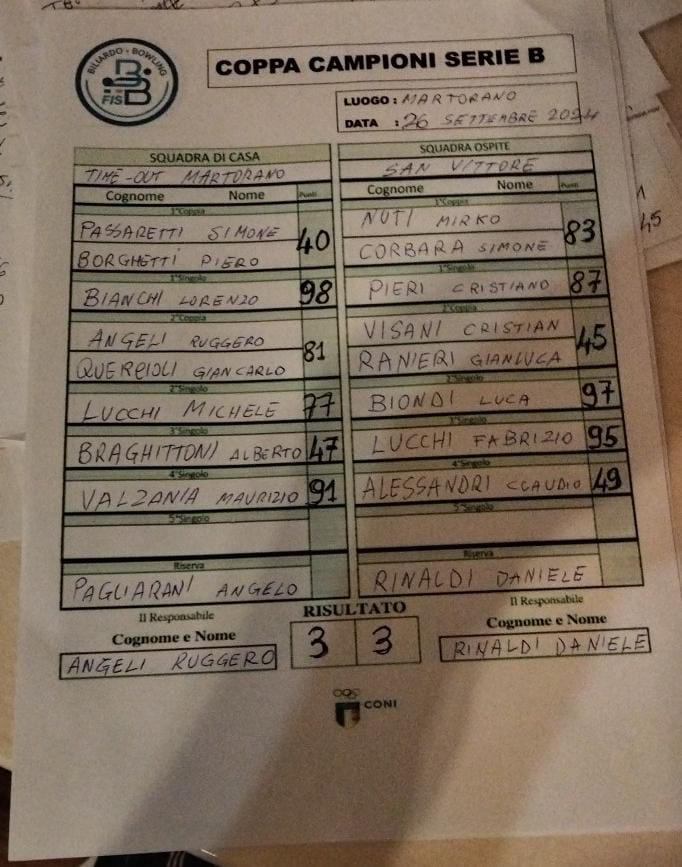 BILIARDO - BOWLING
FISBB
COPPA CAMPIONI SERIE B
LUOGO : MARTORANO
DATA : 26 SETTEMBRE 2024
SQUADRA DI CASA
TIME-OUT MARTORANO
Cognome Nome Punti
1°Coppia
PASSARETTI SIMONE
40
BORGHETTI PIERO
1°Singolo
BIANCHI LORENZO 98
2°Coppia
ANGELI RUGGERO
81
QUERCIOLI GIANCARLO
2°Singolo
LUCCHI MICHELE 77
3°Singolo
BRAGHITTONI ALBERTO 47
4°Singolo
VALZANIA MAURIZIO 91
5°Singolo
Riserva
PAGLIARANI ANGELO
Il Responsabile
Cognome e Nome
ANGELI RUGGERO
SQUADRA OSPITE
SAN VITTORE
Cognome Nome Punti
1°Coppia
NUTI MIRKO
83
CORBARA SIMONE
1°Singolo
PIERI CRISTIANO 87
2°Coppia
VISANI CRISTIAN
45
RANIERI GIANLUCA
2°Singolo
BIONDI LUCA 97
3°Singolo
LUCCHI FABRIZIO 95
4°Singolo
ALESSANDRI CLAUDIO 49
5°Singolo
Riserva
RINALDI DANIELE
Il Responsabile
Cognome e Nome
RINALDI DANIELE
RISULTATO
3 3
CONI
45